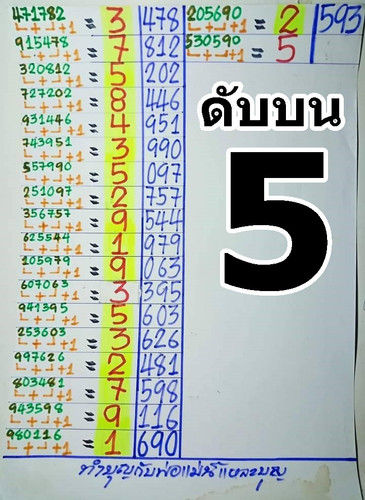 471782 = 3 478 205690 = 2 593
+ + +1 + + +1
915478 = 7 812 530590 = 5
+ + +1 + + +1
320812 = 5 202
+ + +1
727202 = 8 446
+ + +1
931446 = 4 951
+ + +1
743951 = 3 990
+ + +1
557990 = 5 097
+ + +1
251097 = 2 757
+ + +1
356757 = 9 544
+ + +1
625544 = 1 979
+ + +1
105979 = 9 063
+ + +1
607063 = 3 395
+ + +1
941395 = 5 603
+ + +1
253603 = 3 626
+ + +1
997626 = 2 481
+ + +1
803481 = 7 598
+ + +1
943598 = 9 116
+ + +1
980116 = 1 690
+ + +1
ดับบน
5
ทำบุญกับพ่อแม่นี่แหละบุญ